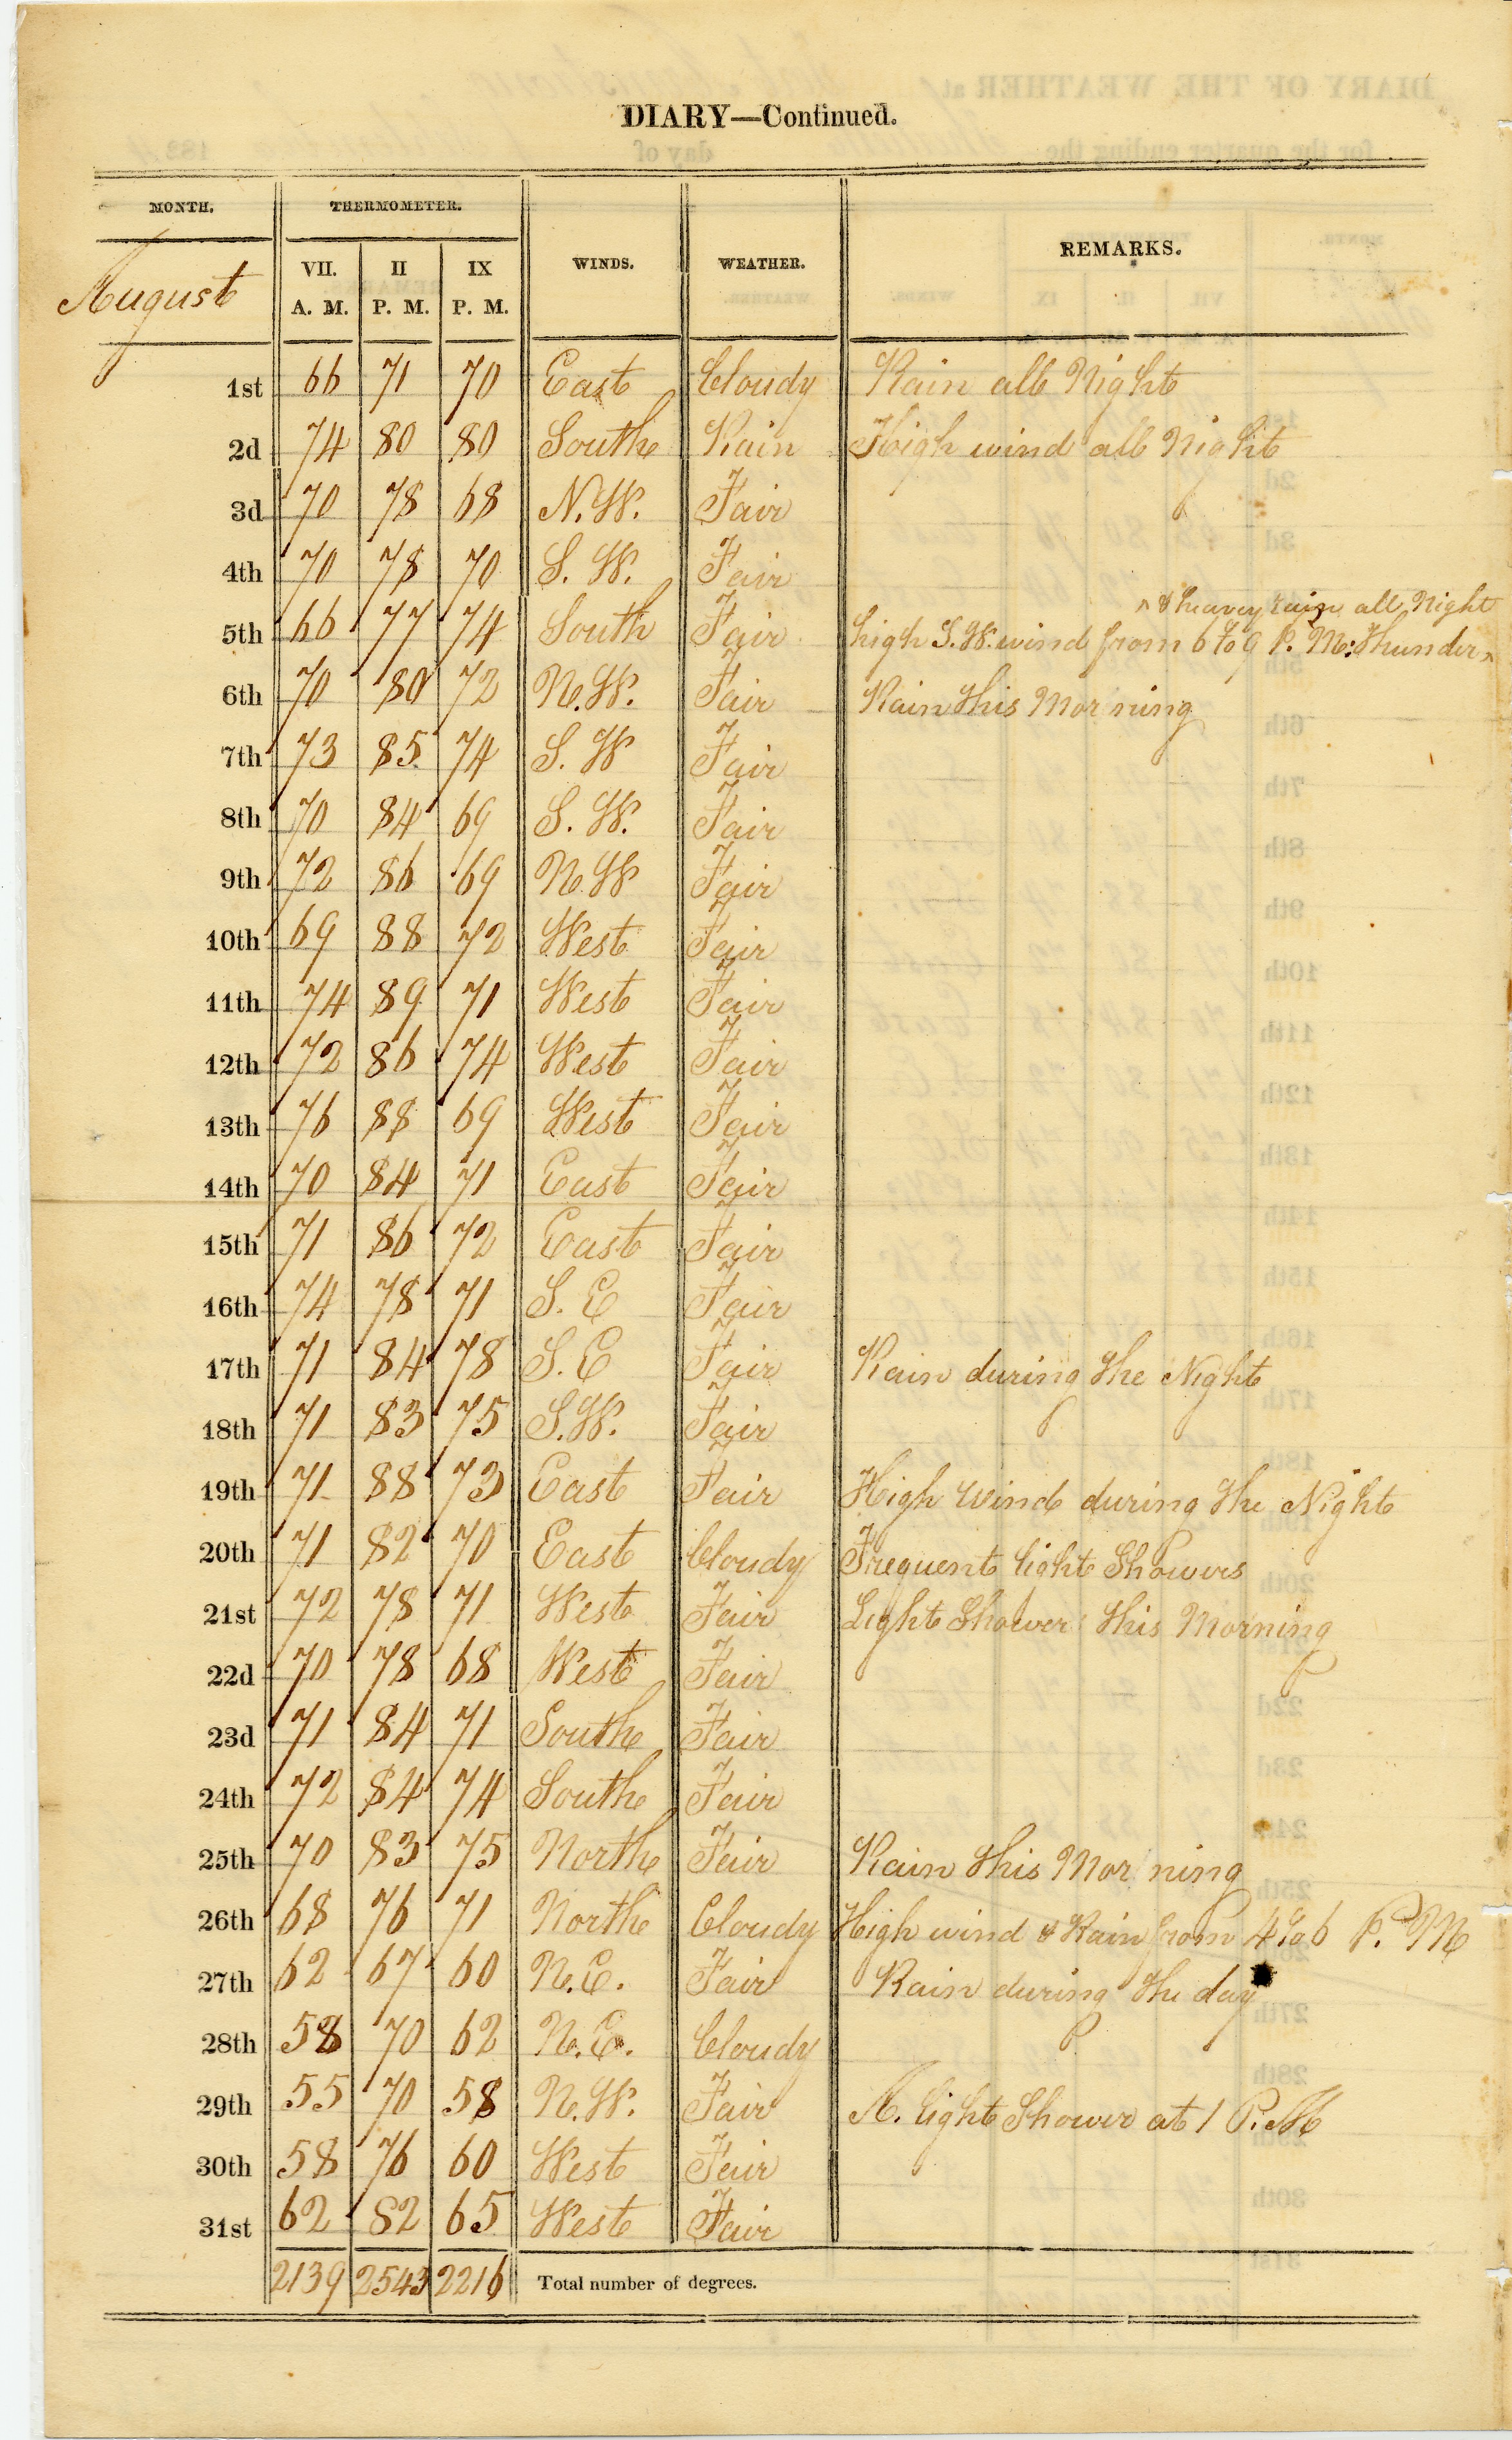 DIARY—Continued.
MONTH. THERMOMETER. WINDS. WEATHER. REMARKS.
August VII. A. M. II P. M. IX P. M.
1st 66 71 70 East Cloudy Rain all Night
2d 74 80 80 South Rain High wind all Night
3d 70 78 68 N.W. Fair
4th 70 78 70 S. W. Fair
^ & heavey rain all Night
5th 66 77 74 South Fair high S.W. wind from 6 to 9 P. M: Thunder ^
6th 70 80 72 N.W. Fair Rain this Morning
7th 73 85 74 S. W Fair
8th 70 84 69 S. W. Fair
9th 72 86 69 N.W Fair
10th 69 88 72 West Fair
11th 74 89 71 West Fair
12th 72 86 74 West Fair
13th 76 88 69 West Fair
14th 70 84 71 East Fair
15th 71 86 72 East Fair
16th 74 78 71 S. E Fair
17th 71 84 78 S. E Fair Rain during the Night
18th 71 83 75 S.W. Fair
19th 71 88 73 East Fair High Wind during the Night
20th 71 82 70 East Cloudy Frequent light Showers
21st 72 78 71 West Fair Light Shower this Morning
22d 70 78 68 West Fair
23d 71 84 71 South Fair
24th 72 84 74 South Fair
25th 70 83 75 North Fair Rain this Morning
26th 68 76 71 North Cloudy High wind & Rain from 4 to 6 P. M
27th 62 67 60 N.E. Fair Rain during the day
28th 58 70 62 N.E. Cloudy
29th 55 70 58 N.W. Fair A. light Shower at 1 P.M
30th 58 76 60 West Fair
31st 62 82 65 West Fair
2139 2543 2216 Total number of degrees.